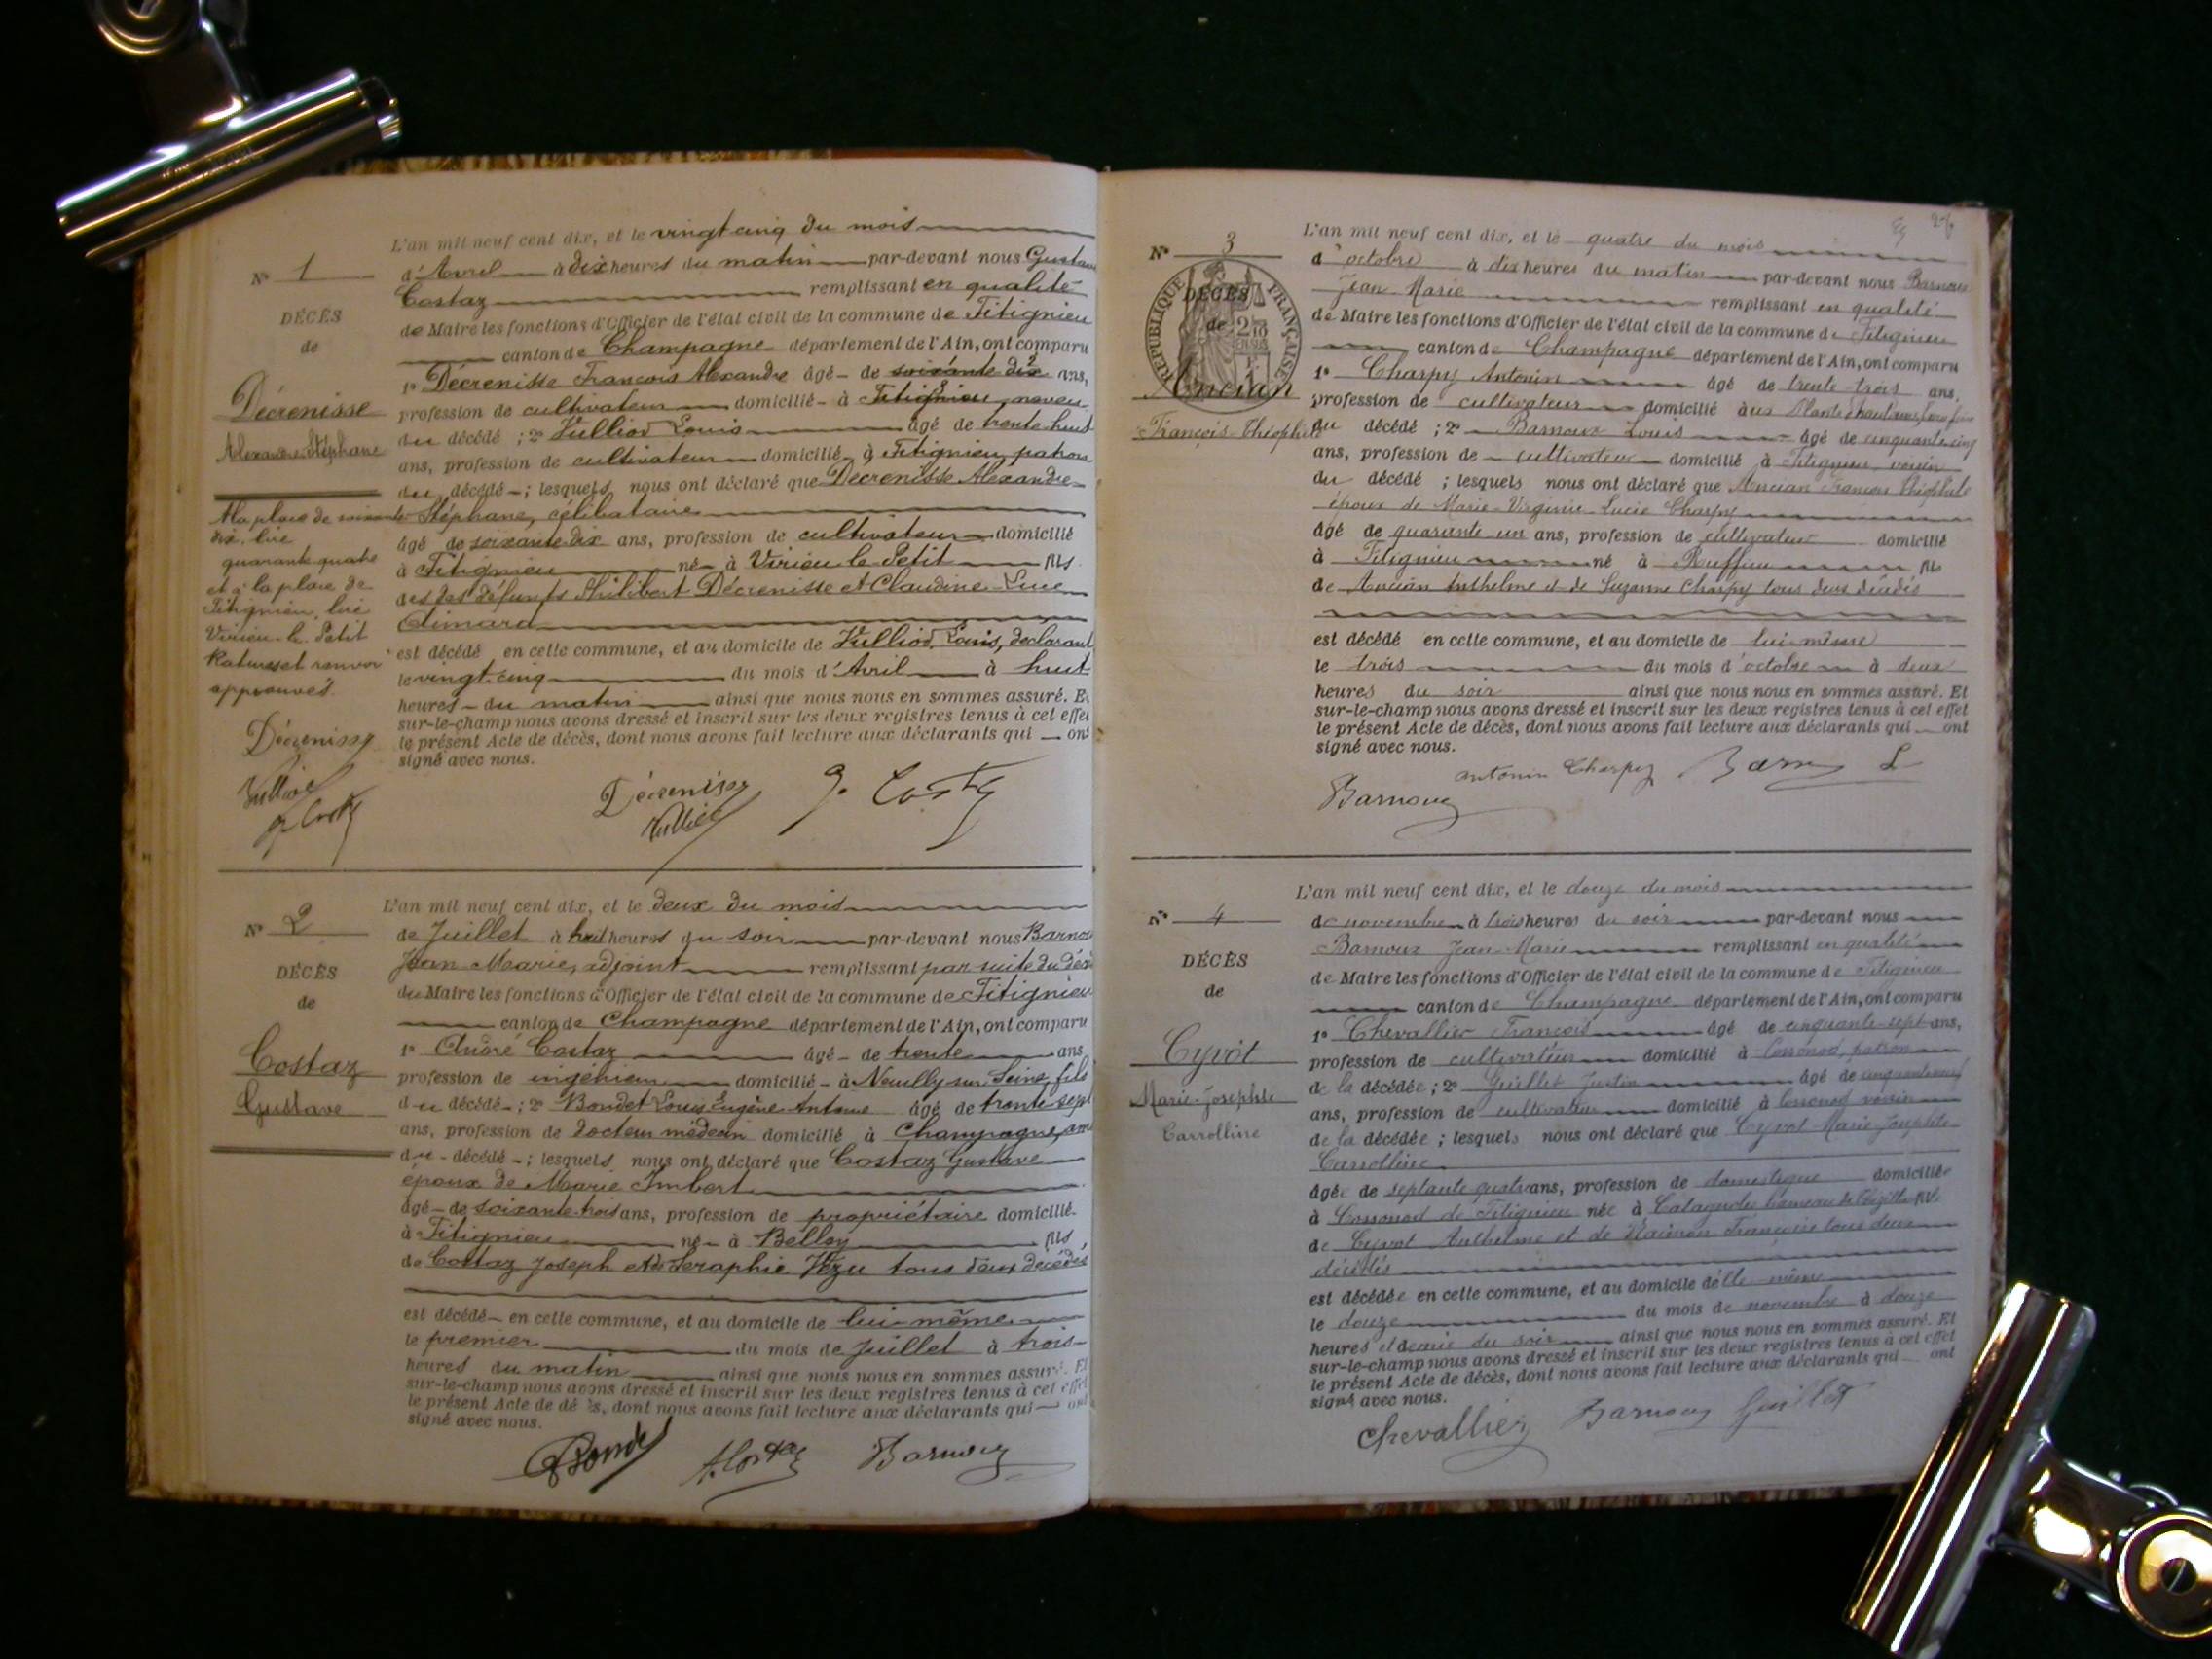 L'an mil neuf cent dix, et le vingt cinq du mois
N° 1
d'Avril à dix heures du matin par-devant nous Gustave
Costaz remplissant en qualité
DÉCÈS
de Maire les fonctions d'Officier de l'état civil de la commune de Fitignieu
de
canton de Champagne département de l'Ain, ont comparu
1° Décrenisse François Alexandre âgé de soixante dix ans,
Décrenisse
profession de cultivateur domicilié à Fitignieu neveu
Alexandre Stéphane
du décédé ; 2° Vulliod Louis âgé de trente huit
ans, profession de cultivateur domicilié à Fitignieu patron
du décédé ; lesquels nous ont déclaré que Décrenisse Alexandre
Stéphane, célibataire
âgé de soixante dix ans, profession de cultivateur domicilié
à Fitignieu né à Virieu le Petit fils
des défunts Philibert Décrenisse et Claudine Luce
Aimard
est décédé en cette commune, et au domicile de Vulliod Louis, déclarant
le vingt cinq du mois d'Avril à huit
heures du matin ainsi que nous nous en sommes assuré. Et
sur-le-champ nous avons dressé et inscrit sur les deux registres tenus à cet effet
le présent Acte de décès, dont nous avons fait lecture aux déclarants qui ont
signé avec nous.
A la place de soixante
dix, lire
quarante quatre
et à la place de
Fitignieu, lire
Virieu le Petit
Ratures et renvoi
approuvés.
Décrenisse
Vulliod
G. Costaz
Décrenisse
Vulliod
G. Costaz
L'an mil neuf cent dix, et le deux du mois
N° 2
de Juillet à huit heures du soir par-devant nous Barnoux
Jean Marie, adjoint remplissant par suite du décès
DÉCÈS
du Maire les fonctions d'Officier de l'état civil de la commune de Fitignieu
de
canton de Champagne département de l'Ain, ont comparu
1° André Costaz âgé de trente ans
Costaz
profession de ingénieur domicilié à Neuilly sur Seine, fils
Gustave
du décédé ; 2° Bondet Louis Eugène Antoine âgé de trente sept
ans, profession de docteur médecin domicilié à Champagne, ami
du décédé ; lesquels nous ont déclaré que Costaz Gustave
époux de Marie Imbert
âgé de soixante trois ans, profession de propriétaire domicilié
à Fitignieu né à Belley fils
de Costaz Joseph et de Seraphie Vezu tous deux décédés
est décédé en cette commune, et au domicile de lui-même
le premier du mois de Juillet à trois
heures du matin ainsi que nous nous en sommes assuré. Et
sur-le-champ nous avons dressé et inscrit sur les deux registres tenus à cet effet
le présent Acte de décès, dont nous avons fait lecture aux déclarants qui ont
signé avec nous.
Bondet A. Costaz Barnoux
L'an mil neuf cent dix, et le quatre du mois
N° 3
d'octobre à dix heures du matin par-devant nous Barnoux
Jean Marie remplissant en qualité
RÉPUBLIQUE FRANÇAISE
DÉCÈS
de
de Maire les fonctions d'Officier de l'état civil de la commune de Fitignieu
canton de Champagne département de l'Ain, ont comparu
1° Charpy Antonin âgé de trente trois ans,
Ancian
profession de cultivateur domicilié
François Théophile
du décédé ; 2° Barnoux Louis âgé de cinquante cinq
ans, profession de cultivateur domicilié à Fitignieu voisin
du décédé ; lesquels nous ont déclaré que Ancian François Théophile
époux de Marie-Virginie-Lucie Charpy
âgé de quarante un ans, profession de cultivateur domicilié
à Fitignieu né à Ruffieu fils
de Ancian Anthelme et de Suzanne Charpy tous deux décédés
est décédé en cette commune, et au domicile de lui-même
le trois du mois d'octobre à deux
heures du soir ainsi que nous nous en sommes assuré. Et
sur-le-champ nous avons dressé et inscrit sur les deux registres tenus à cet effet
le présent Acte de décès, dont nous avons fait lecture aux déclarants qui ont
signé avec nous.
Antonin Charpy
Barnoux
L'an mil neuf cent dix, et le douze du mois
N° 4
de novembre à trois heures du soir par-devant nous
Barnoux Jean-Marie remplissant en qualité
DÉCÈS
de Maire les fonctions d'Officier de l'état civil de la commune de Fitignieu
de
canton de Champagne département de l'Ain, ont comparu
1° Chevallier François âgé de cinquante-sept ans,
Cyvot
profession de cultivateur domicilié à Cossonod, patron
Marie-Josephte
de la décédée ; 2° Guillet Justin âgé de
Carrolline
ans, profession de cultivateur domicilié à Cossonod voisin
de la décédée ; lesquels nous ont déclaré que Cyvot Marie-Josephte
Carrolline
âgée de septante quatre ans, profession de domestique domiciliée
à Cossonod de Fitignieu née à
de Cyvot Anthelme et de Françoise tous deux
décédés
est décédée en cette commune, et au domicile d'elle-même
le douze du mois de novembre à douze
heures et demie du soir ainsi que nous nous en sommes assuré. Et
sur-le-champ nous avons dressé et inscrit sur les deux registres tenus à cet effet
le présent Acte de décès, dont nous avons fait lecture aux déclarants qui ont
signé avec nous.
Chevallier Barnoux Guillet